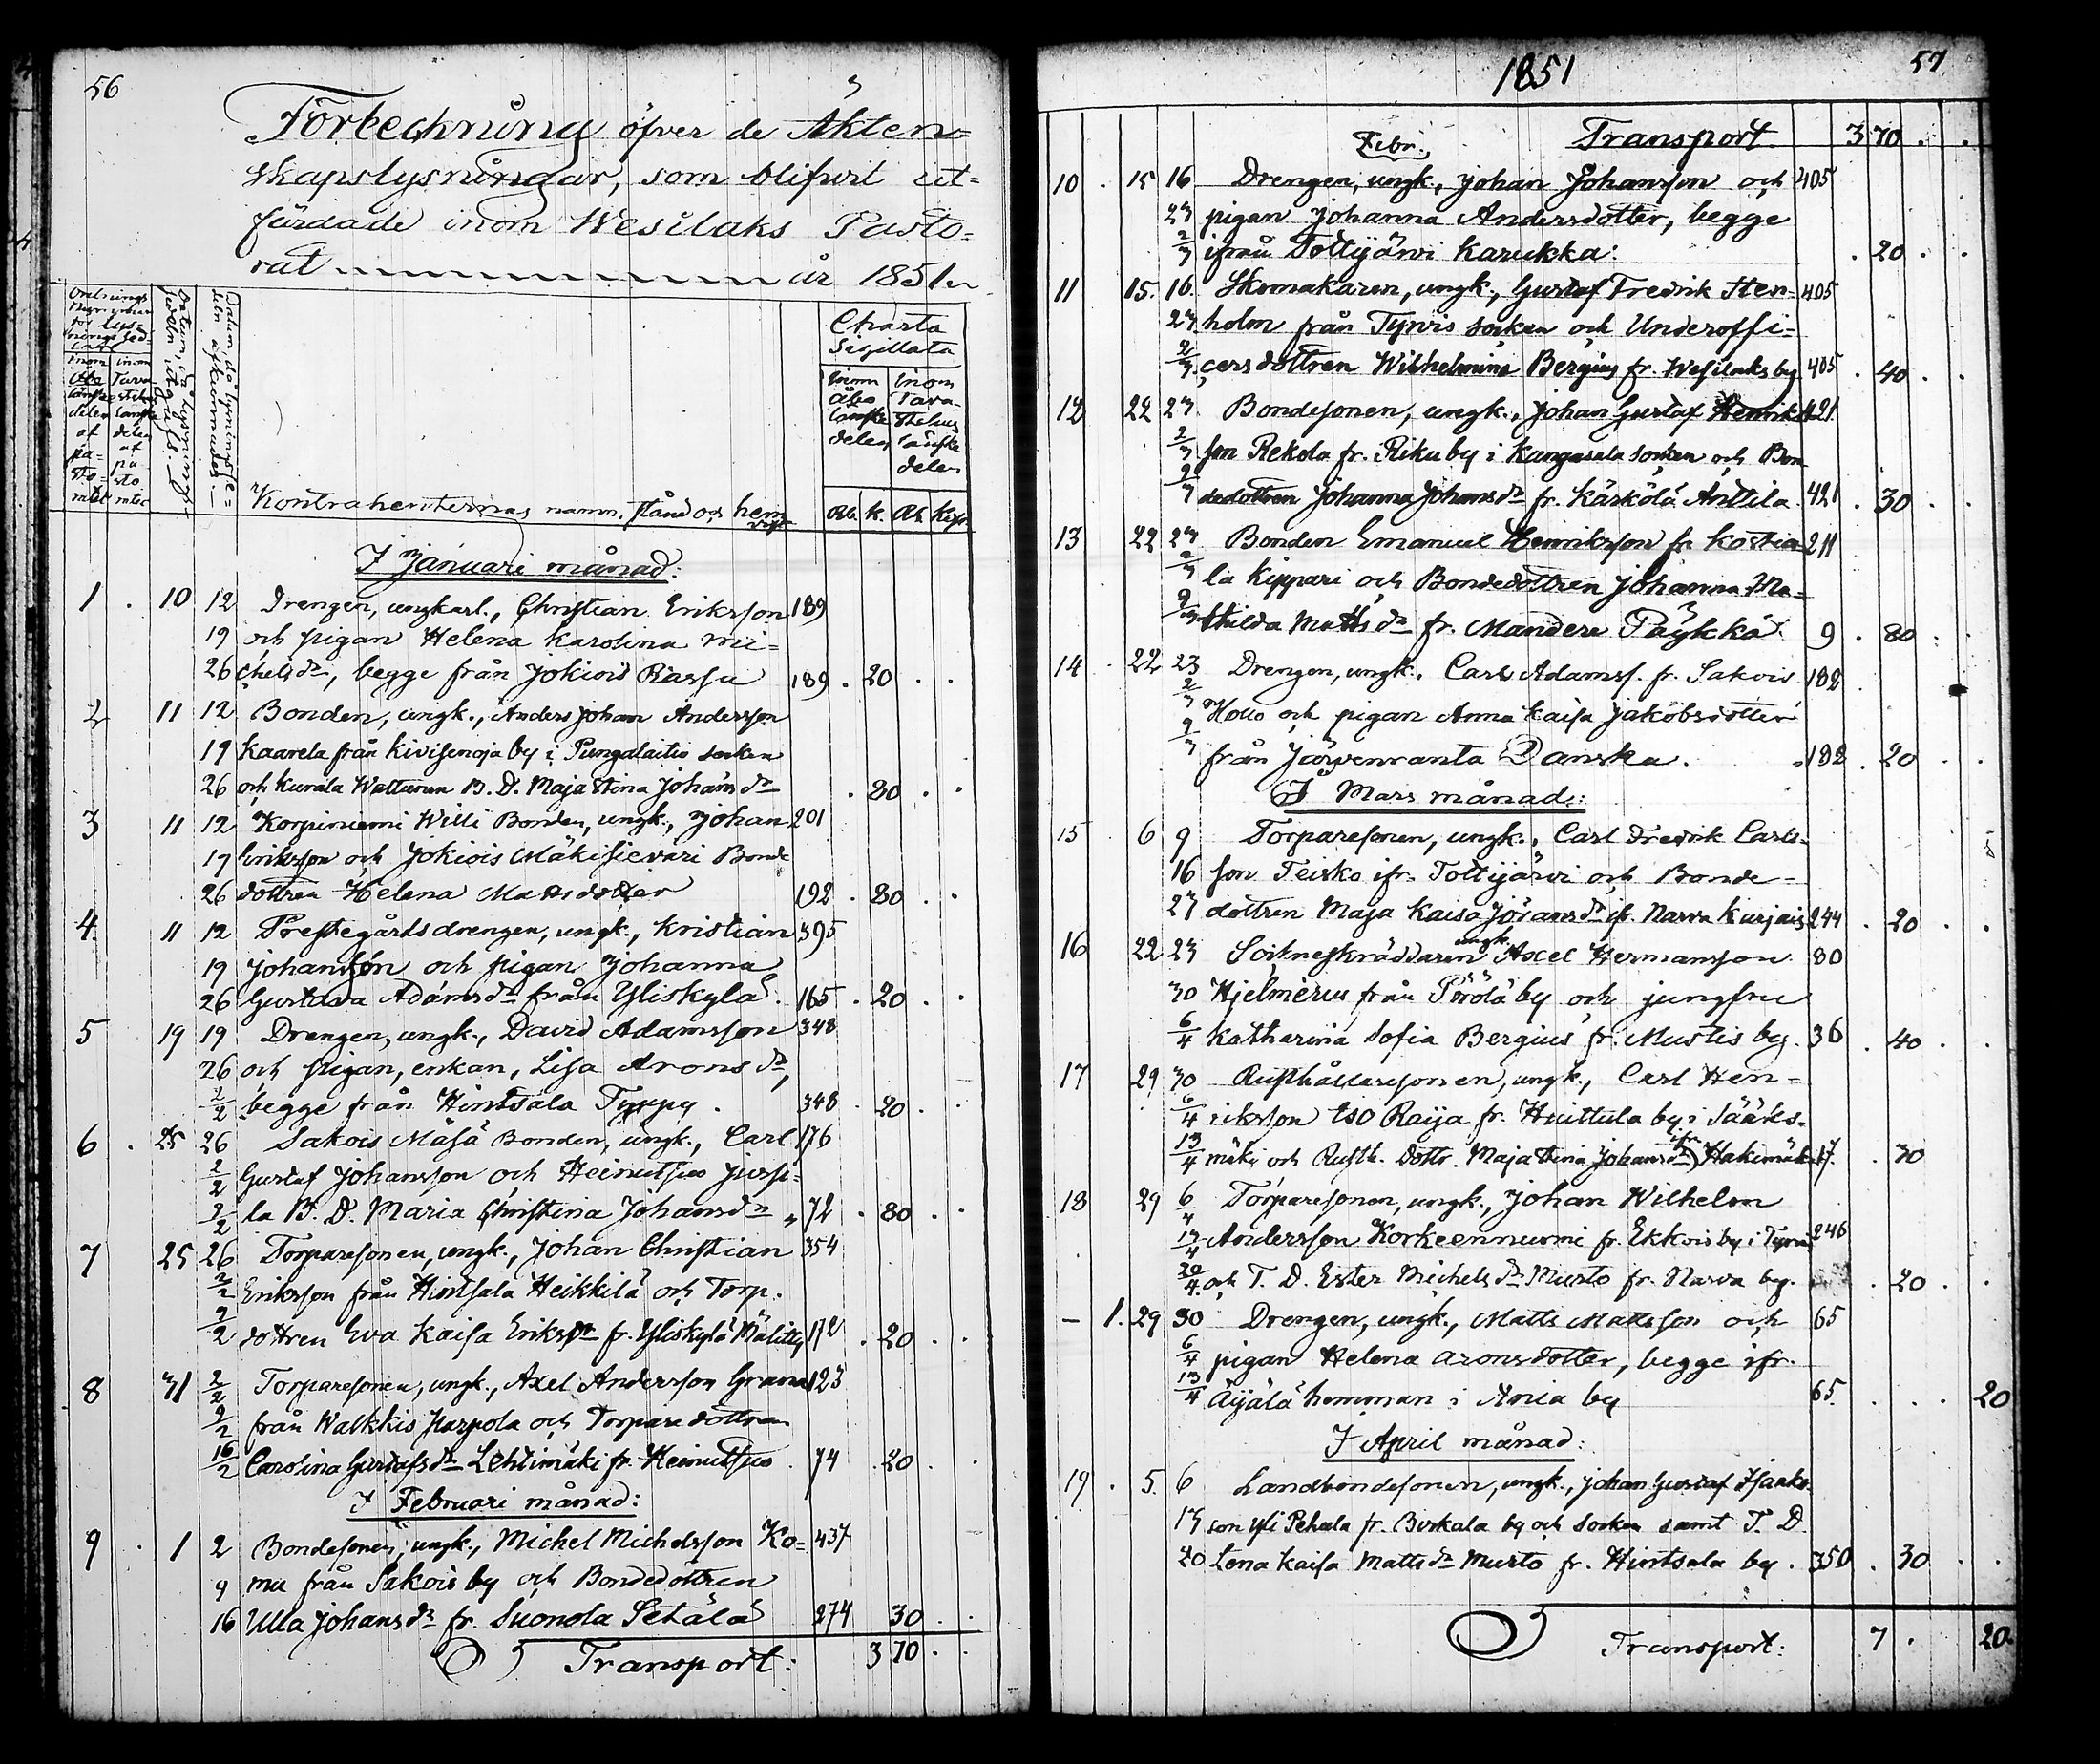 56
Förteckning öfver de Äkten=
skapslysningar, som blifvit ut=
färdade inom Wesilaks Pasto=
rat år 1851.
Ordnings Nummer för Lysningssedlarne
inom Åbo länske delen af pastoratet
inom Tavastehus länske delen af pastoratet
Datum, då lysning
Datum, då lysningsse=
Kontrahenternas namn, stånd och hemvist
Charta Sigillata
Inom Åbo länske delen
Inom Tavastehus länske delen
Rb. k. Rb. Kop.
I Januari månad:
1 . 10 12 Drengen, ungkarl., Christian Eriksson 189
19 och pigan Helena Karolina Mi=
26 chelsdr, begge från Jokiois Rassu 189 . 20 . .
2 11 12 Bonden, ungk., Anders Johan Andersson
19 Kaarela från Kivisenoja by i Pungalaitio socken
26 och Kurala Wattunen B. D. Maja Stina Johansdr . 80 . .
3 11 12 Korpiniemi Willi Bonden, ungk., Johan 201
19 Eriksson och Jokiois Mäkisievari Bonde
26 dottren Helena Mattsdotter 192 . 80 . .
4. 11 12 Prestegårdsdrengen, ungk., Kristian 395
19 Johansson och pigan Johanna
26 Gustava Adamsdr från Yliskylä. 165 . 20 . .
5 19 19 Drengen, ungk., David Adamsson 348
26 och pigan, enkan, Lisa Aronsdr,
2/2 begge från Hintsala Typpy. 348 . 20 . .
6 . 25 26 Sakois Mäsä Bonden, ungk., Carl 176
2/2 Gustaf Johansson och Heinutsuo Jussi=
9/2 la B. D. Maria Christina Johansdr 72 . 80 . .
7 25 26 Torparesonen, ungk., Johan Christian 354
2/2 Eriksson från Hintsala Heikkilä och Torp.
9/2 dottren Eva Kaisa Eriksdr fr. Yliskylä Mälitty 172 . 20 . .
8 31 2/2 Torparesonen, ungk., Axel Andersson Grann 123
9/2 från Walkkis Harpola och Torparedottren
16/2 Carolina Gustafsdr Lehtimäki fr. Heinutsuo 74 . 20 . .
I Februari månad:
9 . 1 2 Bondesonen, ungk., Michel Michelsson Ko= 437
9 mu från Sakois by och Bondedottren
16 Ulla Johansdr fr. Suonola Setälä 274 30 . .
Transport: 3 70 . .
1851
57
Febr. Transport 3 70 . .
10 . 15 16 Drengen, ungk., Johan Johansson och 405
23 pigan Johanna Andersdotter, begge
2/3 ifrån Tottijärvi Karukka: . 20 . .
11 15. 16. Skomakaren, ungk., Gustaf Fredrik Sten= 405
23 holm från Tyrvis socken och Underoffi=
2/3 cersdottren Wilhelmina Bergius fr. Wesilaks by 405 . 40 . .
12 22 23. Bondesonen, ungk., Johan Gustaf Henriks 421
2/3 son Rekola fr. Riku by i Kangasala socken och Bon
9/3 dedottren Johanna Johansdr fr. Kärkölä Anttila. 421 . 30 . .
13 22 23 Bonden Emanuel Henriksson fr. Kostia= 211
2/3 la Kippari och Bondedottren Johanna Ma=
9/3 thilda Mattsdr fr. Mandere Päykkä. 9 . 80 . .
14 . 22 23 Drengen, ungk. Carl Adamss. fr. Sakois 182
2/3 Hollo och pigan Anna Kaisa Jakobsdotter
9/3 från Järvenranta Danska. 182 . 20 . .
I Mars månad:
15 . 6 9 Torparesonen, ungk., Carl Fredrik Carls=
16 son Teisko ifr. Tottijärvi och Bonde=
23 dottren Maja Kaisa Jöransdr ifr. Narva Kurjais 244 . 20 . .
16 22 23 Socknesskräddaren ungk. Axel Hermansson 80
30 Hjelmerus från Pörölä by och jungfru
6/4 Katharina Sofia Bergius fr. Mustis by. 36 . 40 . .
17 29 30 Rusthållaresonen, ungk., Carl Hen=
6/4 riksson Iso Raija fr. Huittula by i Sääks=
13/4 mäki och Rusth. dottr. Maja Stina Johansdr ifr. Hakimäki 17. . 30
18 29 6/4 Torparesonen, ungk., Johan Wilhelm
13/4 Andersson Korkeennurmi fr. Ekkois by i Tyrvis 246
20/4. och T. D. Ester Michelsdr Murto fr. Narva by. . 20 . .
— 1. 29 30 Drengen, ungk., Matts Mattsson och 65
6/4 pigan Helena Aronsdotter, begge ifr.
13/4 Äijälä hemman i Ania by 65. . . . 20
I April månad:
19 . 5. 6 Landbondesonen, ungk., Johan Gustaf Isaks=
13 son Yli Pehula fr. Birkala by och socken samt T. D.
20 Lena Kaisa Mattsdr Murto fr. Hintsala by. 350 . 30 . .
Transport: 7 . 20.